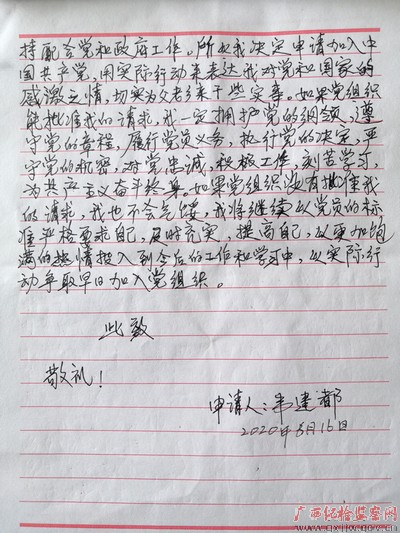 持配合党和政府工作。所以我决定申请加入中
国共产党，用实际行动来表达我对党和国家的
感激之情，切实为父老乡亲干些实事。如果党组织
能批准我的请求，我一定拥护党的纲领，遵
守党的章程，履行党员义务，执行党的决定，严
守党的机密，对党忠诚，积极工作，刻苦学习，
为共产主义奋斗终身。如果党组织没有批准我
的请求，我也不会气馁，我将继续以党员的标
准严格要求自己，及时充实，提高自己，以更加饱
满的热情投入到今后的工作和学习中，以实际行
动争取早日加入党组织。
此致
敬礼！
申请人：韦建都
2020年3月16日
广西纪检监察网
www.gxjjw.gov.cn